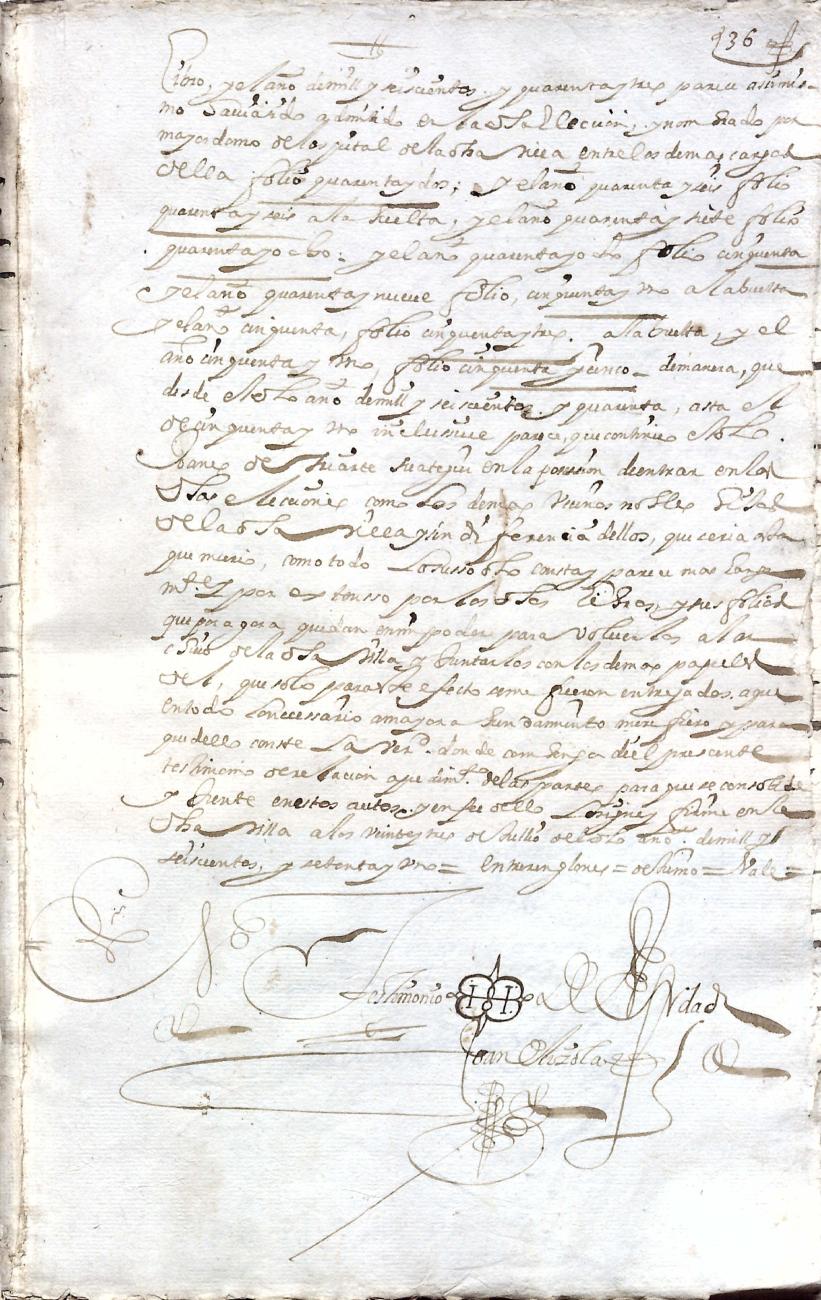 136
Libro, y el año de mill y seiscientos, y quarenta y tres pareze assimis-
mo admitido en la dha Eleccion, y nombrado por
mayordomo del ospital de la dha villa entre los demas cargos
della folio quarenta y dos; y el año quarenta y seis folio
quarenta y seis a la buelta, y el año quarenta y siete folio
quarenta y ocho; y el año quarenta y ocho folio cinquenta
y el año quarenta y nueve folio, cinquenta y uno a la buelta
y el año cinquenta, folio cinquenta y tres. a la buelta, y el
año cinquenta y uno, folio cinquenta y cinco - de manera, que
desde el dho año de mill y seiscientos y quarenta, asta el
de cinquenta y uno inclussive pareze, que continuo el dho
Joanes de en la possesion de entrar en las
dhas elecciones como los demas vecinos nobles
de la dha villa y sin diferencia dellos, que seria asta
que murio, como todo lo susso dho consta y pareze mas larga
mte y por estensso por los dhos libros, y sus folios
que por agora quedan en mi poder para volverlos al ar
chivo de la dha villa, y juntarlos con los demas papeles
del, que solo para este efecto se me fueron entregados, a que
en todo lo necessario a mayor abundamiento me refiero y para
que dello conste la verd. donde combenga di el pressente
testimonio de relacion a pedimto de las partes para que se
y en estos autos. y en fee dello lo signe y firme en la
dha villa a los veinte y tres de Jullio del dho año. de mill y
seiscientos, y setenta y uno = Entre renglones = = Vale =
En testimonio de Verdad
Joan Elizalde